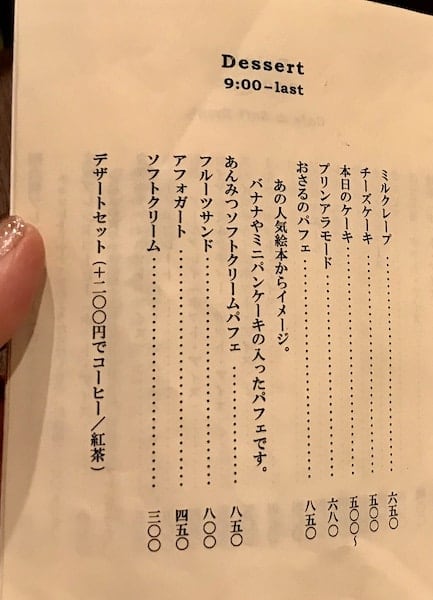 Dessert
9:00–last
ミルクレープ 六五〇
チーズケーキ 五〇〇
本日のケーキ 五〇〇〜
プリンアラモード 六八〇
おさるのパフェ 八五〇
あの人気絵本からイメージ。
バナナやミニパンケーキの入ったパフェです。
あんみつソフトクリームパフェ 八五〇
フルーツサンド 八〇〇
アフォガート 四五〇
ソフトクリーム 三〇〇
デザートセット（＋二〇〇円でコーヒー／紅茶）